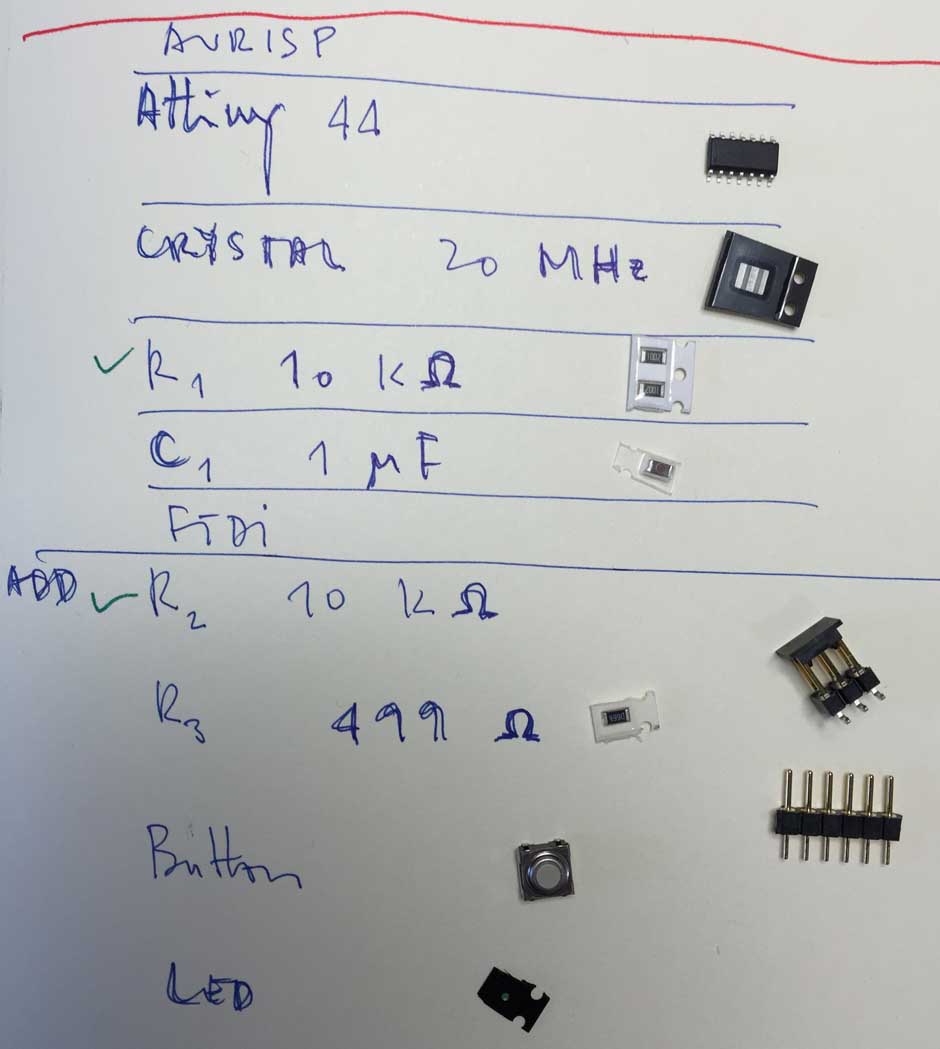 AVRISP
Attiny 44
CRYSTAL 20 MHz
✓ R1 10 kΩ
1002
1002
C1 1 μF
FTDi
ADD ✓ R2 10 kΩ
R3 499 Ω
4990
Button
LED